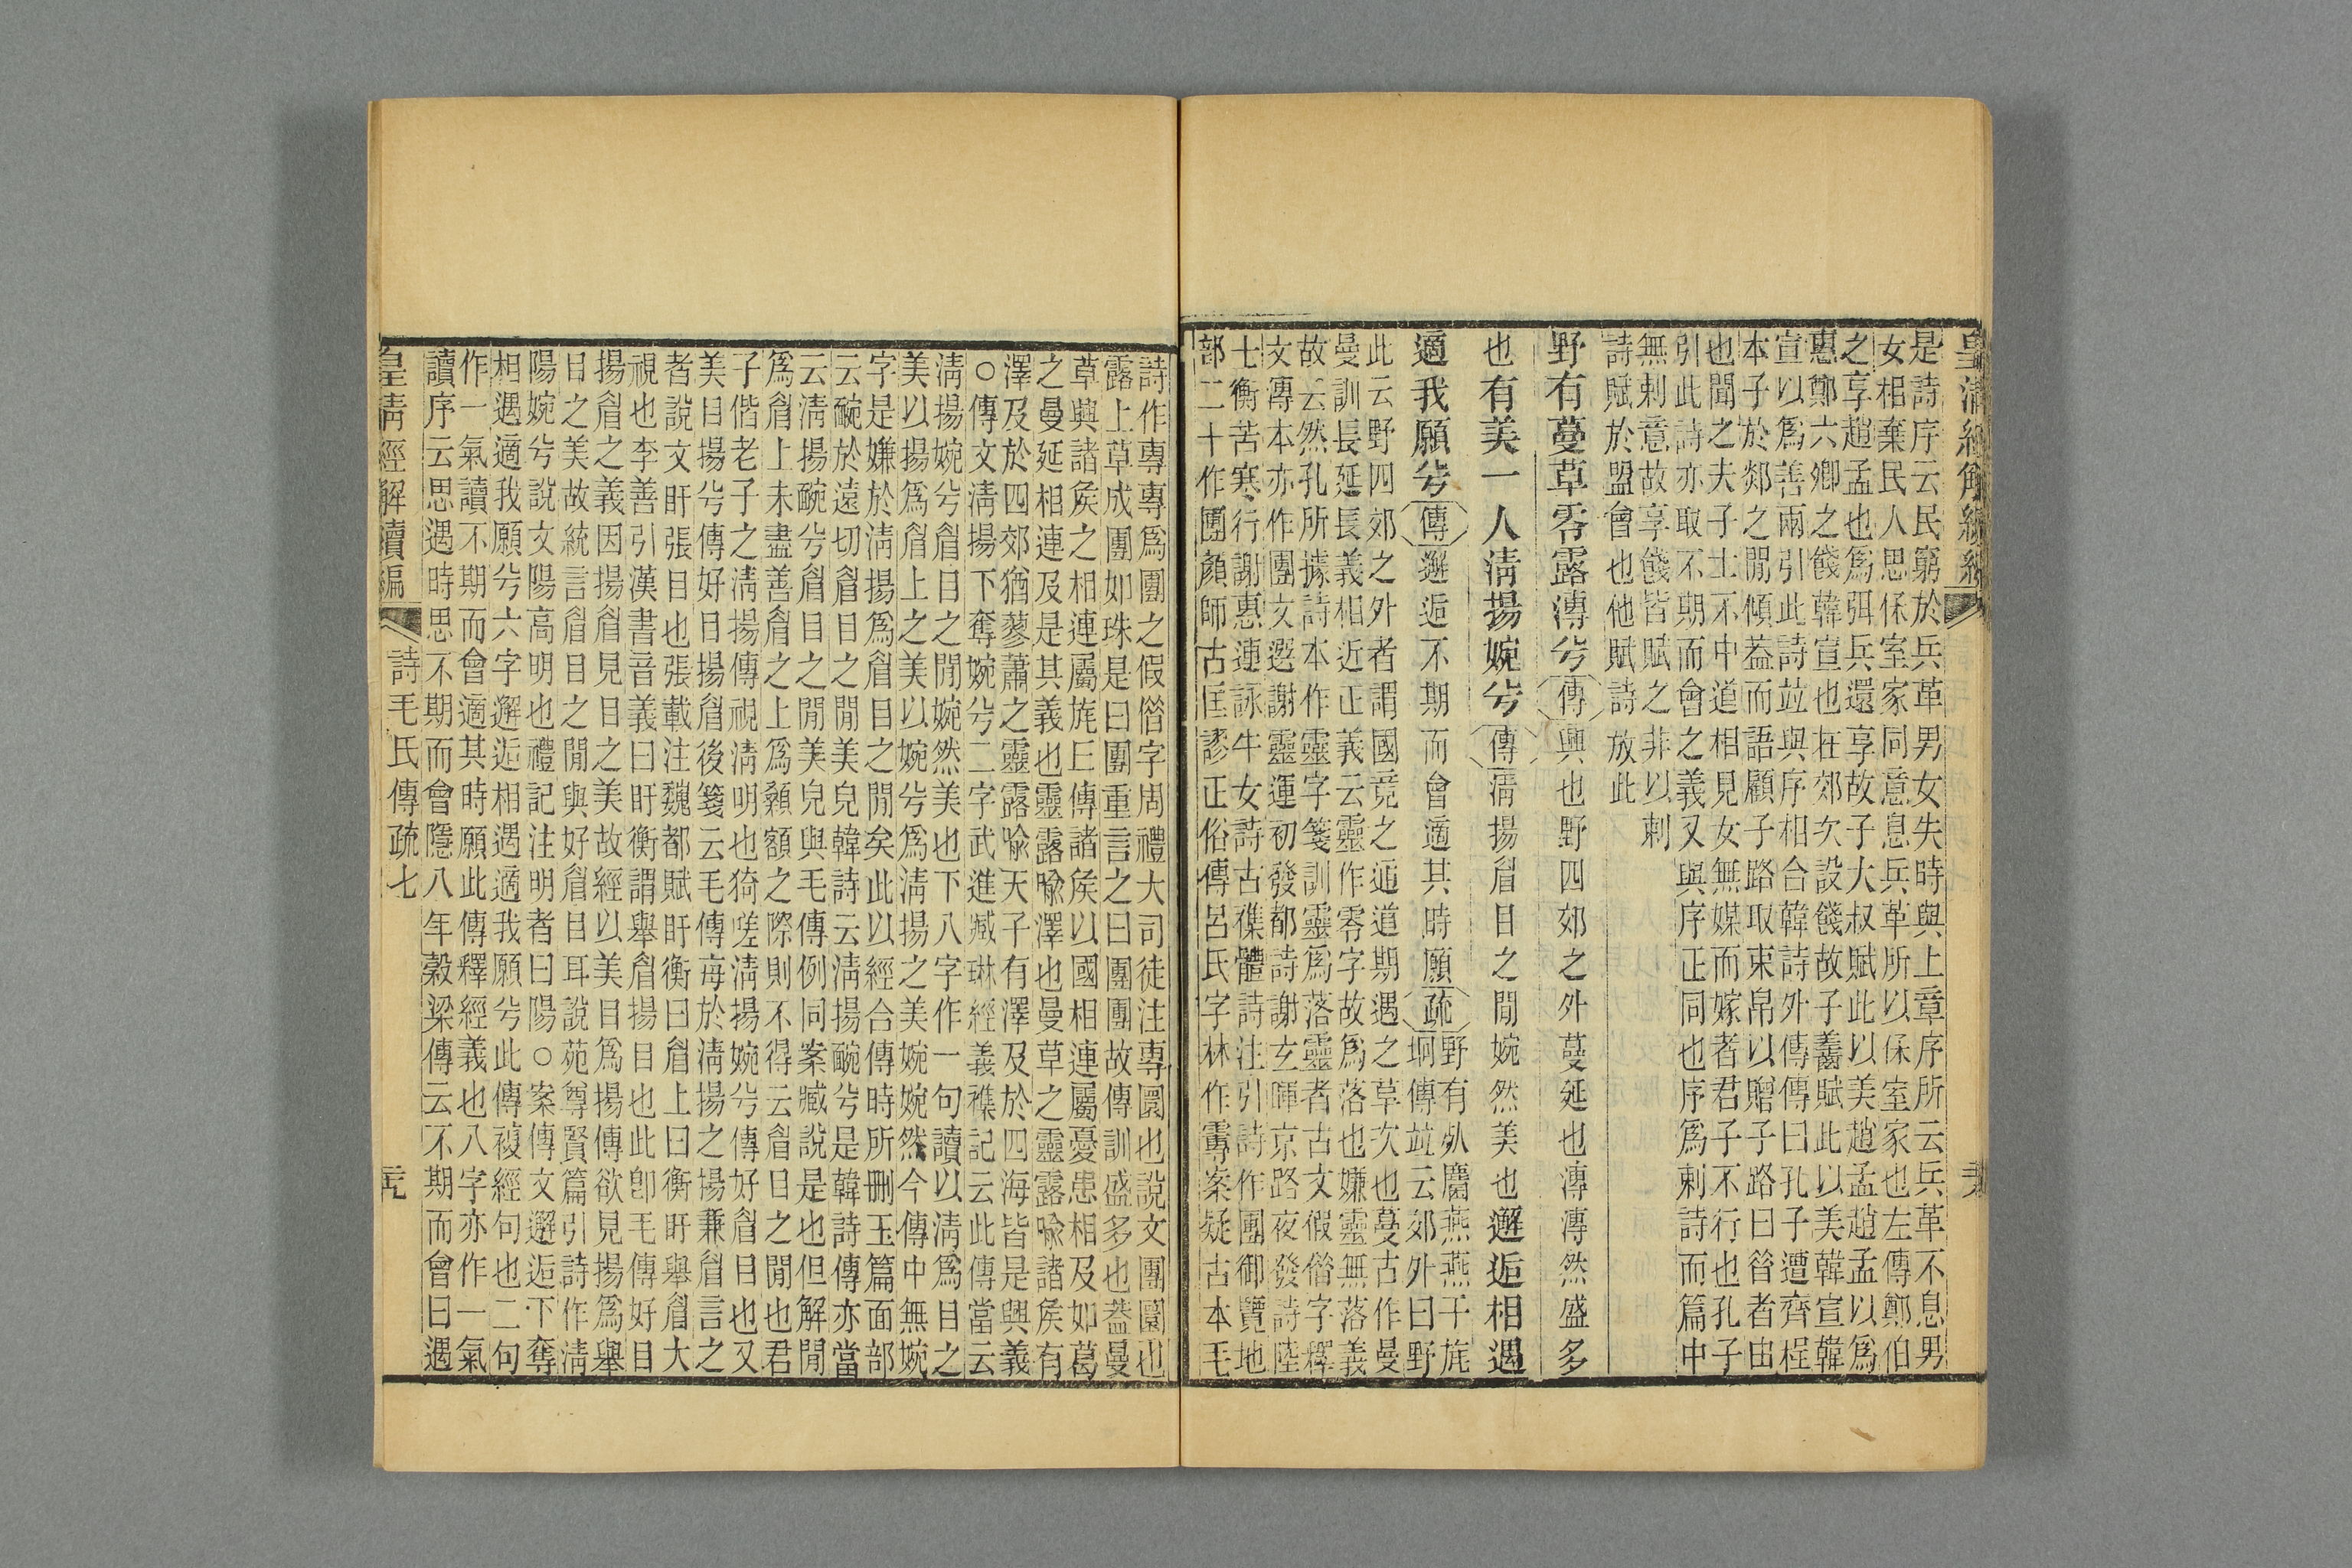 是詩序云民窮於兵革男女失時與上章序所云兵革不息男
女相棄民人思保室家同意息兵革所以保室家也左傳鄭伯
之享趙孟也為弭兵還享故子大叔賦此以美趙孟趙孟以為
惠鄭六卿之餞韓宣也在郊次設餞故子齹賦此以美韓宣韓
宣以為善兩引此詩竝與序相合韓詩外傳傳曰孔子遭齊程
本子於郯之閒傾蓋而語顧子路取束帛以贈子路曰昔者由
也聞之夫子士不中道相見女無媒而嫁者君子不行也孔子
引此詩亦取不期而會之義又與序正同也序為刺詩而篇中
無刺意故享餞皆賦之非以刺
詩賦於盟會也他賦詩放此
野有蔓草零露漙兮傳興也野四郊之外蔓延也漙漙然盛多
也有美一人清揚婉兮傳清揚眉目之閒婉然美也邂逅相遇
適我願兮傳邂逅不期而會適其時願疏野有㚈麕燕燕干旄
坰傳竝云郊外曰野
此云野四郊之外者謂國竟之通道期遇之草次也蔓古作曼
曼訓長延長義相近正義云靈作零字故為落也嫌靈無落義
故云然孔所據詩本作靈字箋訓靈為落靈者古文假借字釋
文傳本亦作團文選謝靈運初發都詩謝玄暉京路夜發詩陸
士衡苦寒行謝惠連詠牛女詩古襍體詩注引詩作團御覽地
部二十作團顏師古匡謬正俗傳呂氏字林作䨦案疑古本毛
詩作專專為團之假借字周禮大司徒注專圜也說文團圜也
露上草成團如珠是曰團重言之曰團團故傳訓盛多也葢曼
草與諸矦之相連屬旄丘傳諸矦以國相連屬憂患相及如葛
之曼延相連及是其義也靈露喻澤也曼草之靈露喻諸矦有
澤及於四郊猶蓼蕭之靈露喻天子有澤及於四海皆是興義
○傳文清揚下奪婉兮二字武進臧琳經義襍記云此傳當云
清揚婉兮眉目之閒婉然美也下八字作一句讀以清為目之
美以揚為眉上之美以婉兮為清揚之美婉婉然今傳中無婉
字是嫌於清揚為眉目之閒矣此以經合傳時所刪玉篇面部
云䩊於遠切眉目之閒美皃韓詩云清揚䩊兮是韓詩傳亦當
云清揚䩊兮眉目之閒美皃與毛傳例同案臧說是也但解閒
為眉上未盡善眉之上為顙額之際則不得云眉目之閒也君
子偕老子之清揚傳視清明也猗嗟清揚婉兮傳好眉目也又
美目揚兮傳好目揚眉後箋云毛傳每於清揚之揚兼眉言之
者說文盱張目也張載注魏都賦盱衡曰眉上曰衡盱舉眉大
視也李善引漢書音義曰盱衡謂舉眉揚目也此即毛傳好目
揚眉之義因揚眉見目之美故經以美目為揚傳欲見揚為舉
目之美故統言眉目之閒與好眉目耳說苑尊賢篇引詩作清
陽婉兮說文陽高明也禮記注明者曰陽○案傳文邂逅下奪
相遇適我願兮六字邂逅相遇適我願兮此傳複經句也二句
作一氣讀不期而會適其時願此傳釋經義也八字亦作一氣
讀序云思遇時思不期而會隱八年穀梁傳云不期而會曰遇
皇清經解續編 詩毛氏傳疏七